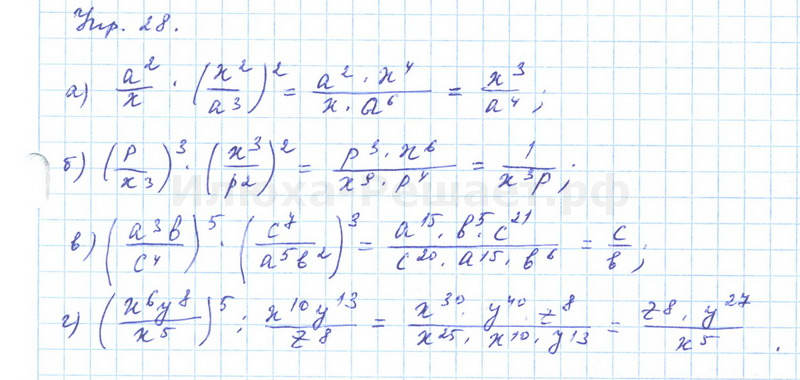 Упр. 28.
а) a²/x · (x²/a³)² = a² · x⁴/x · a⁶ = x³/a⁴;
б) (p/x³)³ · (x³/p²)² = p³ · x⁶/x⁹ · p⁴ = 1/x³p;
Илюха-Решает.рф
в) (a³b/c⁴)⁵ · (c⁷/a⁵b²)³ = a¹⁵ · b⁵ · c²¹/c²⁰ · a¹⁵ · b⁶ = c/b;
г) (x⁶y⁸/x⁵)⁵ : x¹⁰y¹³/z⁸ = x³⁰ · y⁴⁰ · z⁸/x²⁵ · x¹⁰ · y¹³ = z⁸ · y²⁷/x⁵.